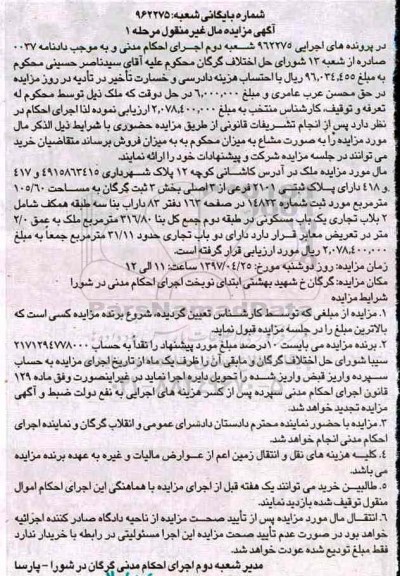 شماره بایگانی شعبه: ۹۶۲۲۷۵
آگهی مزایده مال غیرمنقول مرحله ۱
در پرونده های اجرایی ۹۶۲۲۷۵ شعبه دوم اجرای احکام مدنی و به موجب دادنامه ۰۰۳۷
صادره از شعبه ۱۳ شورای حل اختلاف گرگان محکوم علیه آقای سیدناصر حسینی محکوم
به مبلغ ۹۶,۰۳۴,۴۵۵ ریال با احتساب هزینه دادرسی و خسارت تأخیر در تأدیه در روز مزایده
در حق محسن عرب عامری و مبلغ ۶,۰۰۰,۰۰۰ در حل دوقت که ملک ذیل توسط محکوم له
تعرفه و توقیف، کارشناس منتخب به مبلغ ۲,۰۷۸,۴۰۰,۰۰۰ ارزیابی نموده لذا اجرای احکام در
نظر دارد پس از انجام تشریفات قانونی از طریق مزایده حضوری با شرایط ذیل الذکر مال
مورد مزایده را به صورت مشاع به میزان محکوم به به میزان فروش برساند متقاضیان خرید
می توانند در جلسه مزایده شرکت و پیشنهادات خود را ارائه نمایند.
مال مورد مزایده ملک در آدرس کاشانی کوچه ۱۲ پلاک شهرداری ۴۹۱۵۸۶۳۴۱۵ و ۴۱۷
و ۴۱۸ دارای پلاک ثبتی فرعی از ۳ اصلی بخش ۳ ثبت گرگان به مساحت ۱۰۵/۶۰
مترمربع مورد ثبت شماره ۱۴۸۲۳ در صفحه ۱۶۲ دفتر ۸۳ داراب بنا سه طبقه همکف شامل
۲ بلاب تجاری یک باب مسکونی در طبقه دوم جمع کل بنا ۳۱۶/۸۰ مترمربع ملک به عمق ۲/۰۰
متر در تعریض معابر قرار دارد دارای دو باب تجاری حدود ۳۱/۱۱ مترمربع جمعاً به مبلغ
۲,۰۷۸,۴۰۰,۰۰۰ ریال مورد ارزیابی قرار گرفته است.
زمان مزایده: روز دوشنبه مورخ: ۱۳۹۷/۰۴/۲۵ ساعت: ۱۱ الی ۱۲
مکان مزایده: گرگان خ شهید بهشتی ابتدای نوبخت اجرای احکام مدنی در شورا
شرایط مزایده
۱. مزایده از مبلغی که توسط کارشناس تعیین گردیده، شروع برنده مزایده کسی است که
بالاترین مبلغ را در جلسه مزایده قبول نماید.
۲. برنده مزایده می بایست ۱۰درصد مبلغ مورد پیشنهاد را نقداً به حساب ۲۱۷۱۲۹۴۷۷۸۰۰۰
سیبا شورای حل اختلاف گرگان و مابقی آن را ظرف یک ماه از تاریخ اجرای مزایده به حساب
سپرده واریز قبض واریز شده را تحویل دایره اجرا نماید در غیراینصورت وفق ماده ۱۲۹
قانون اجرای احکام مدنی سپرده پس از کسر هزینه های اجرایی به نفع دولت ضبط و آگهی
مزایده تجدید خواهد شد.
۳. مزایده با حضور نماینده محترم دادستان دادسرای عمومی و انقلاب گرگان و نماینده اجرای
احکام مدنی انجام خواهد شد.
۴. کلیه هزینه های نقل و انتقال زمین اعم از عوارض مالیات و غیره به عهده برنده مزایده
می باشد.
۵. طالبین خرید می توانند یک هفته قبل از اجرای مزایده با هماهنگی این اجرای احکام اموال
منقول توقیف شده بازدید نمایند.
۶. انتقال مال مورد مزایده پس از تأیید صحت مزایده از ناحیه دادگاه صادر کننده اجرائیه
خواهد بود در صورت عدم تأیید صحت مزایده این اجرا مسئولیتی در رابطه با خریدار ندارد
فقط مبلغ تودیع شده عودت خواهد شد.
مدیر شعبه دوم اجرای احکام مدنی گرگان در شورا - پارسا